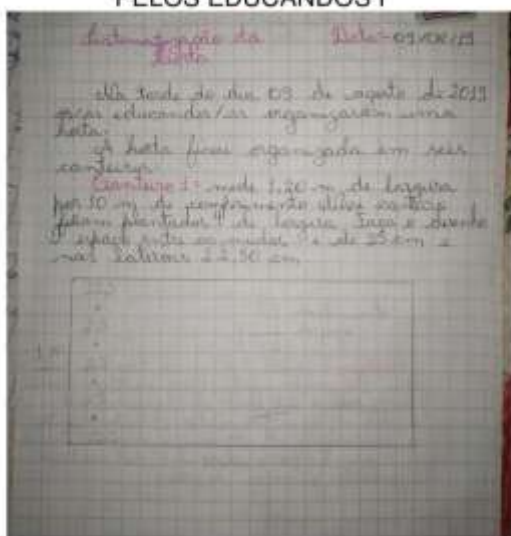 PELOS EDUCANDOS I
Sistematização da Data: 09/08/19
horta
Na tarde do dia 09 de agosto de 2019
os/as educandos/as organizaram uma
horta.
A horta ficou organizada em seis
canteiros.
Canteiro 1: mede 1,20 m de largura
por 10 m de comprimento
foram plantados de largura. Faça o desenho
O espaço entre as mudas é de 25 cm e
nas laterais 22,50 cm.